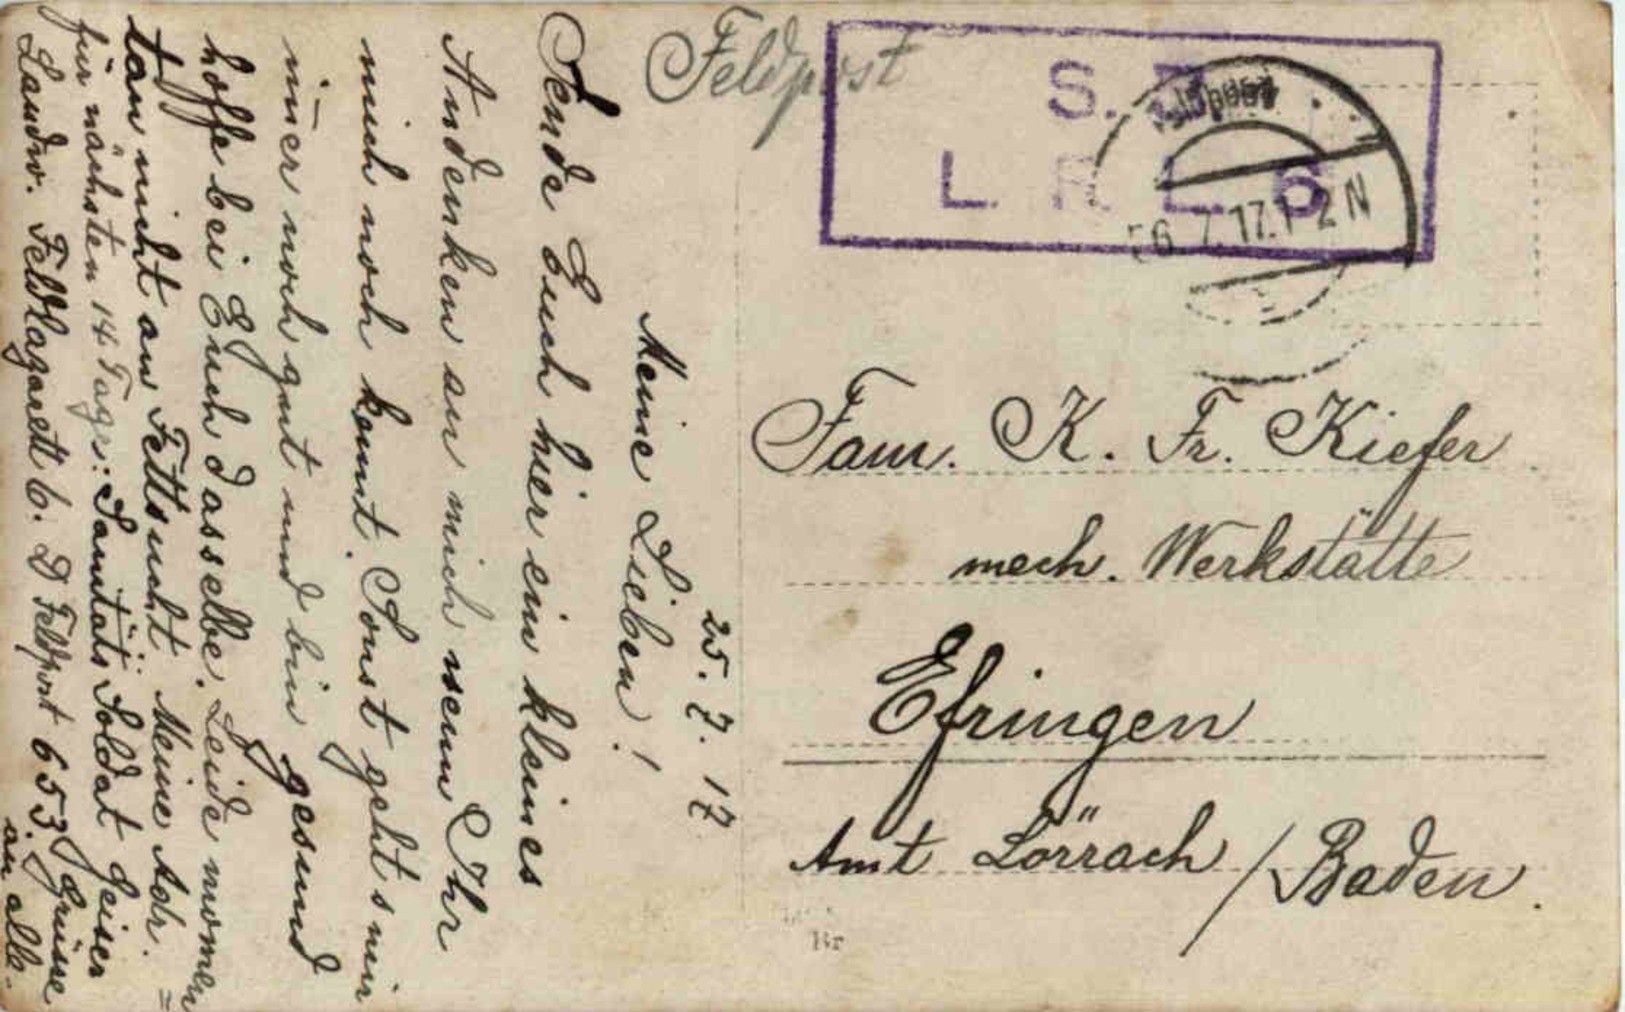 Feldpost
S. B.
L. R. L. 6
Feldpost
26.7.17.1-2N
Fam. K. Fr. Kiefer
mech. Werkstätte
Efringen
Amt Lörrach / Baden.
25. 7. 17
Meine Lieben!
Sende Euch hier ein kleines
Andenken an mich wenn Ihr
mich noch kennt. Sonst geht's mir
im̄er noch gut und bin gesund
hoffe bei Euch dasselbe. Leide momen
tan nicht an Fettsucht. Meine Adr.
für nächsten 14 Tage: Sanitäts Soldat Geiser
Landw. Feldlazarett 6. D. Feldpost 653. Grüsse
an alle.